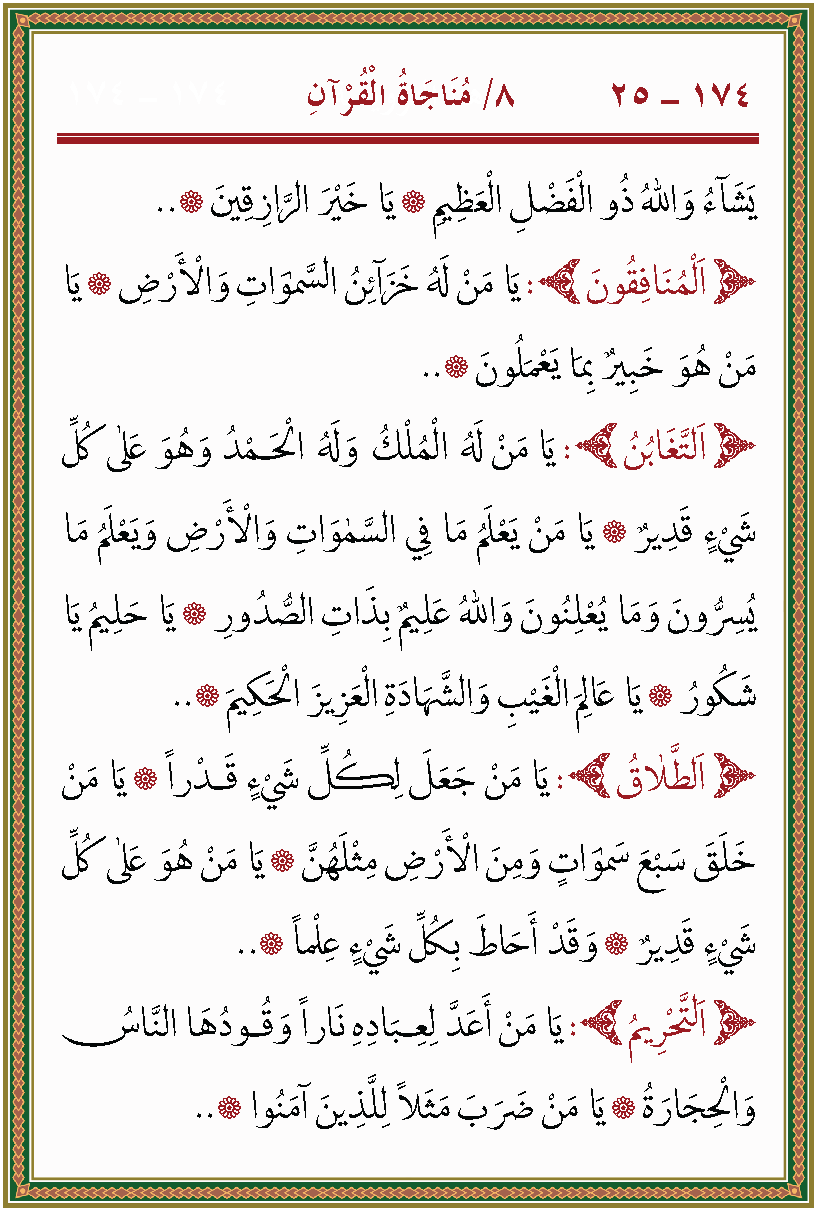 ١٧٤ – ٢٥ ٨/ مُنَاجَاةُ الْقُرْآنِ ١٧٤ – ١٧٤
يَشَآءُ وَاللهُ ذُو الْفَضْلِ الْعَظِيمِ ۞ يَا خَيْرَ الرَّازِقِينَ ۞..
﴿ اَلْمُنَافِقُونَ ﴾: يَا مَنْ لَهُ خَزَآئِنُ السَّمٰوَاتِ وَالْأَرْضِ ۞ يَا
مَنْ هُوَ خَبِيرٌ بِمَا يَعْمَلُونَ ۞..
﴿ اَلتَّغَابُنُ ﴾: يَا مَنْ لَهُ الْمُلْكُ وَلَهُ الْحَمْدُ وَهُوَ عَلٰى كُلِّ
شَيْءٍ قَدِيرٌ ۞ يَا مَنْ يَعْلَمُ مَا فِي السَّمٰوَاتِ وَالْأَرْضِ وَيَعْلَمُ مَا
يُسِرُّونَ وَمَا يُعْلِنُونَ وَاللهُ عَلِيمٌ بِذَاتِ الصُّدُورِ ۞ يَا حَلِيمُ يَا
شَكُورُ ۞ يَا عَالِمَ الْغَيْبِ وَالشَّهَادَةِ الْعَزِيزَ الْحَكِيمَ ۞..
﴿ اَلطَّلٰاقُ ﴾: يَا مَنْ جَعَلَ لِكُلِّ شَيْءٍ قَدْراً ۞ يَا مَنْ
خَلَقَ سَبْعَ سَمٰوَاتٍ وَمِنَ الْأَرْضِ مِثْلَهُنَّ ۞ يَا مَنْ هُوَ عَلٰى كُلِّ
شَيْءٍ قَدِيرٌ ۞ وَقَدْ أَحَاطَ بِكُلِّ شَيْءٍ عِلْماً ۞..
﴿ اَلتَّحْرِيمُ ﴾: يَا مَنْ أَعَدَّ لِعِبَادِهِ نَاراً وَقُودُهَا النَّاسُ
وَالْحِجَارَةُ ۞ يَا مَنْ ضَرَبَ مَثَلاً لِلَّذِينَ آمَنُوا ۞..